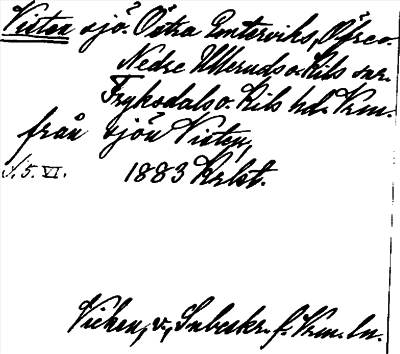 Visten sjö. Östra Emterviks, Övre o.
Nedre Ulleruds o. Kils snr.
Fryksdals o. Kils hd. Vrm.
från sjön Visten,
S. 5. VI. 1883 Krlst.
Vicken, v., Inbeskr. f. Vrm. ln.